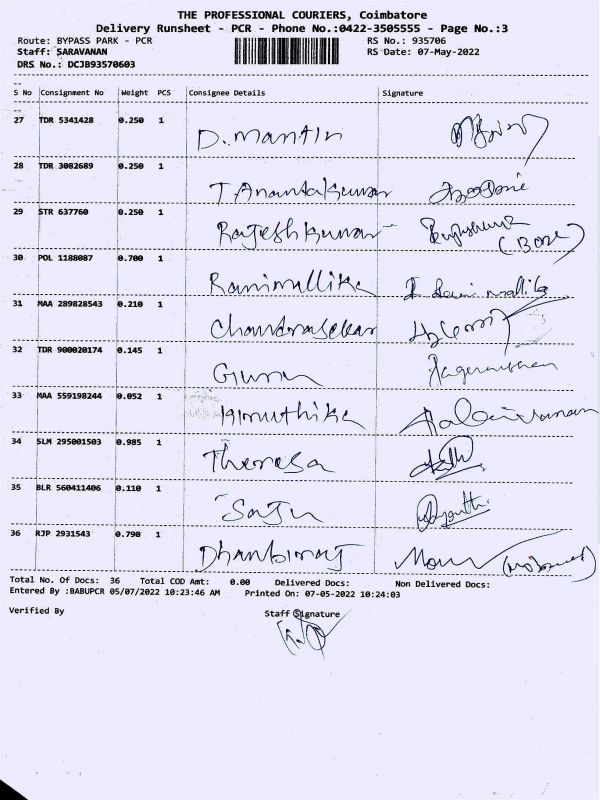 THE PROFESSIONAL COURIERS, Coimbatore
Delivery Runsheet - PCR - Phone No.:0422-3505555 - Page No.:3
Route: BYPASS PARK - PCR RS No.: 935706
Staff: SARAVANAN RS Date: 07-May-2022
DRS No.: DCJB93570603
S No Consignment No Weight PCS Consignee Details Signature
27 TDR 5341428 0.250 1 D. Mantin
28 TDR 3082689 0.250 1 T. Anandakumar
29 STR 637760 0.250 1 Rajeshkumar
(Boss)
30 POL 1188087 0.700 1 Ranimallika
31 MAA 289828543 0.210 1 Chandrasekar
32 TDR 900020174 0.145 1 Guru
33 MAA 559198244 0.052 1
34 SLM 295001503 0.985 1 Theresa
35 BLR 560411406 0.110 1 Saju
36 RJP 2931543 0.790 1
Total No. Of Docs: 36 Total COD Amt: 0.00 Delivered Docs: Non Delivered Docs:
Entered By :BABUPCR 05/07/2022 10:23:46 AM Printed On: 07-05-2022 10:24:03
Verified By Staff Signature